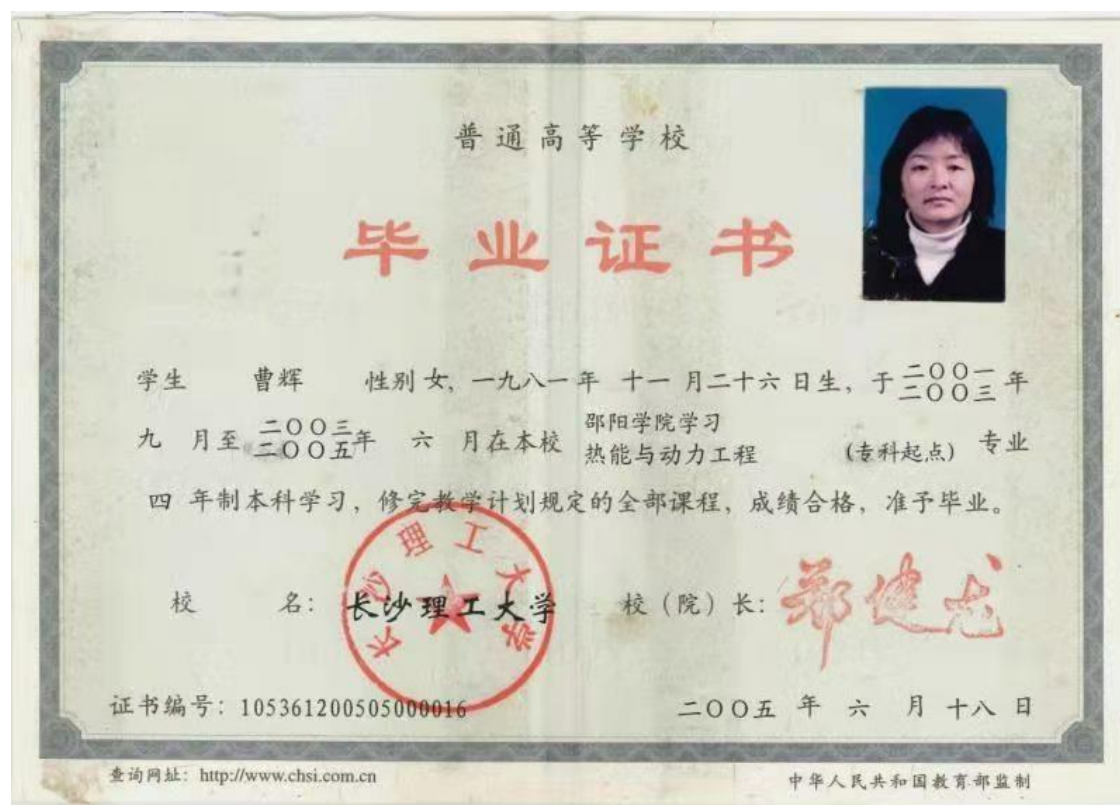 普通高等学校
毕业证书
学生 曹辉 性别 女，一九八一年 十一 月二十六 日生，于 二〇〇一 二〇〇三 年
九 月至 二〇〇三 二〇〇五 年 六 月在本校 邵阳学院学习 热能与动力工程 （专科起点） 专业
四 年制本科学习，修完教学计划规定的全部课程，成绩合格，准予毕业。
长沙理工大学
校 名： 长沙理工大学 校（院）长： 郑健龙
证书编号：105361200505000016 二〇〇五 年 六 月 十八 日
查询网址：http://www.chsi.com.cn 中华人民共和国教育部监制